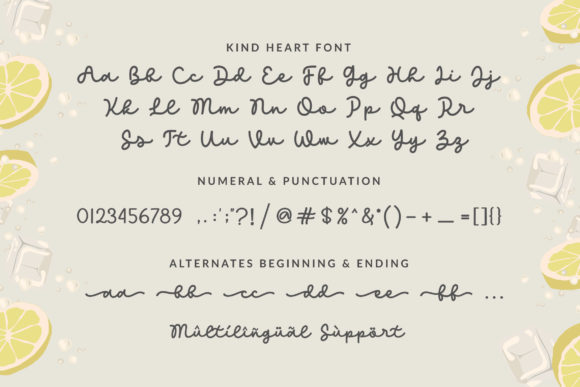 KIND HEART FONT
Aa Bb Cc Dd Ee Ff Gg Hh Ii Jj
Kk Ll Mm Nn Oo Pp Qq Rr
Ss Tt Uu Vv Ww Xx Yy Zz
NUMERAL & PUNCTUATION
0123456789 ,.:';"?!/@#$%^&*()-+_=[]{}
ALTERNATES BEGINNING & ENDING
aa bb cc dd ee ff ...
Mûltilïñgüäl Sùppört